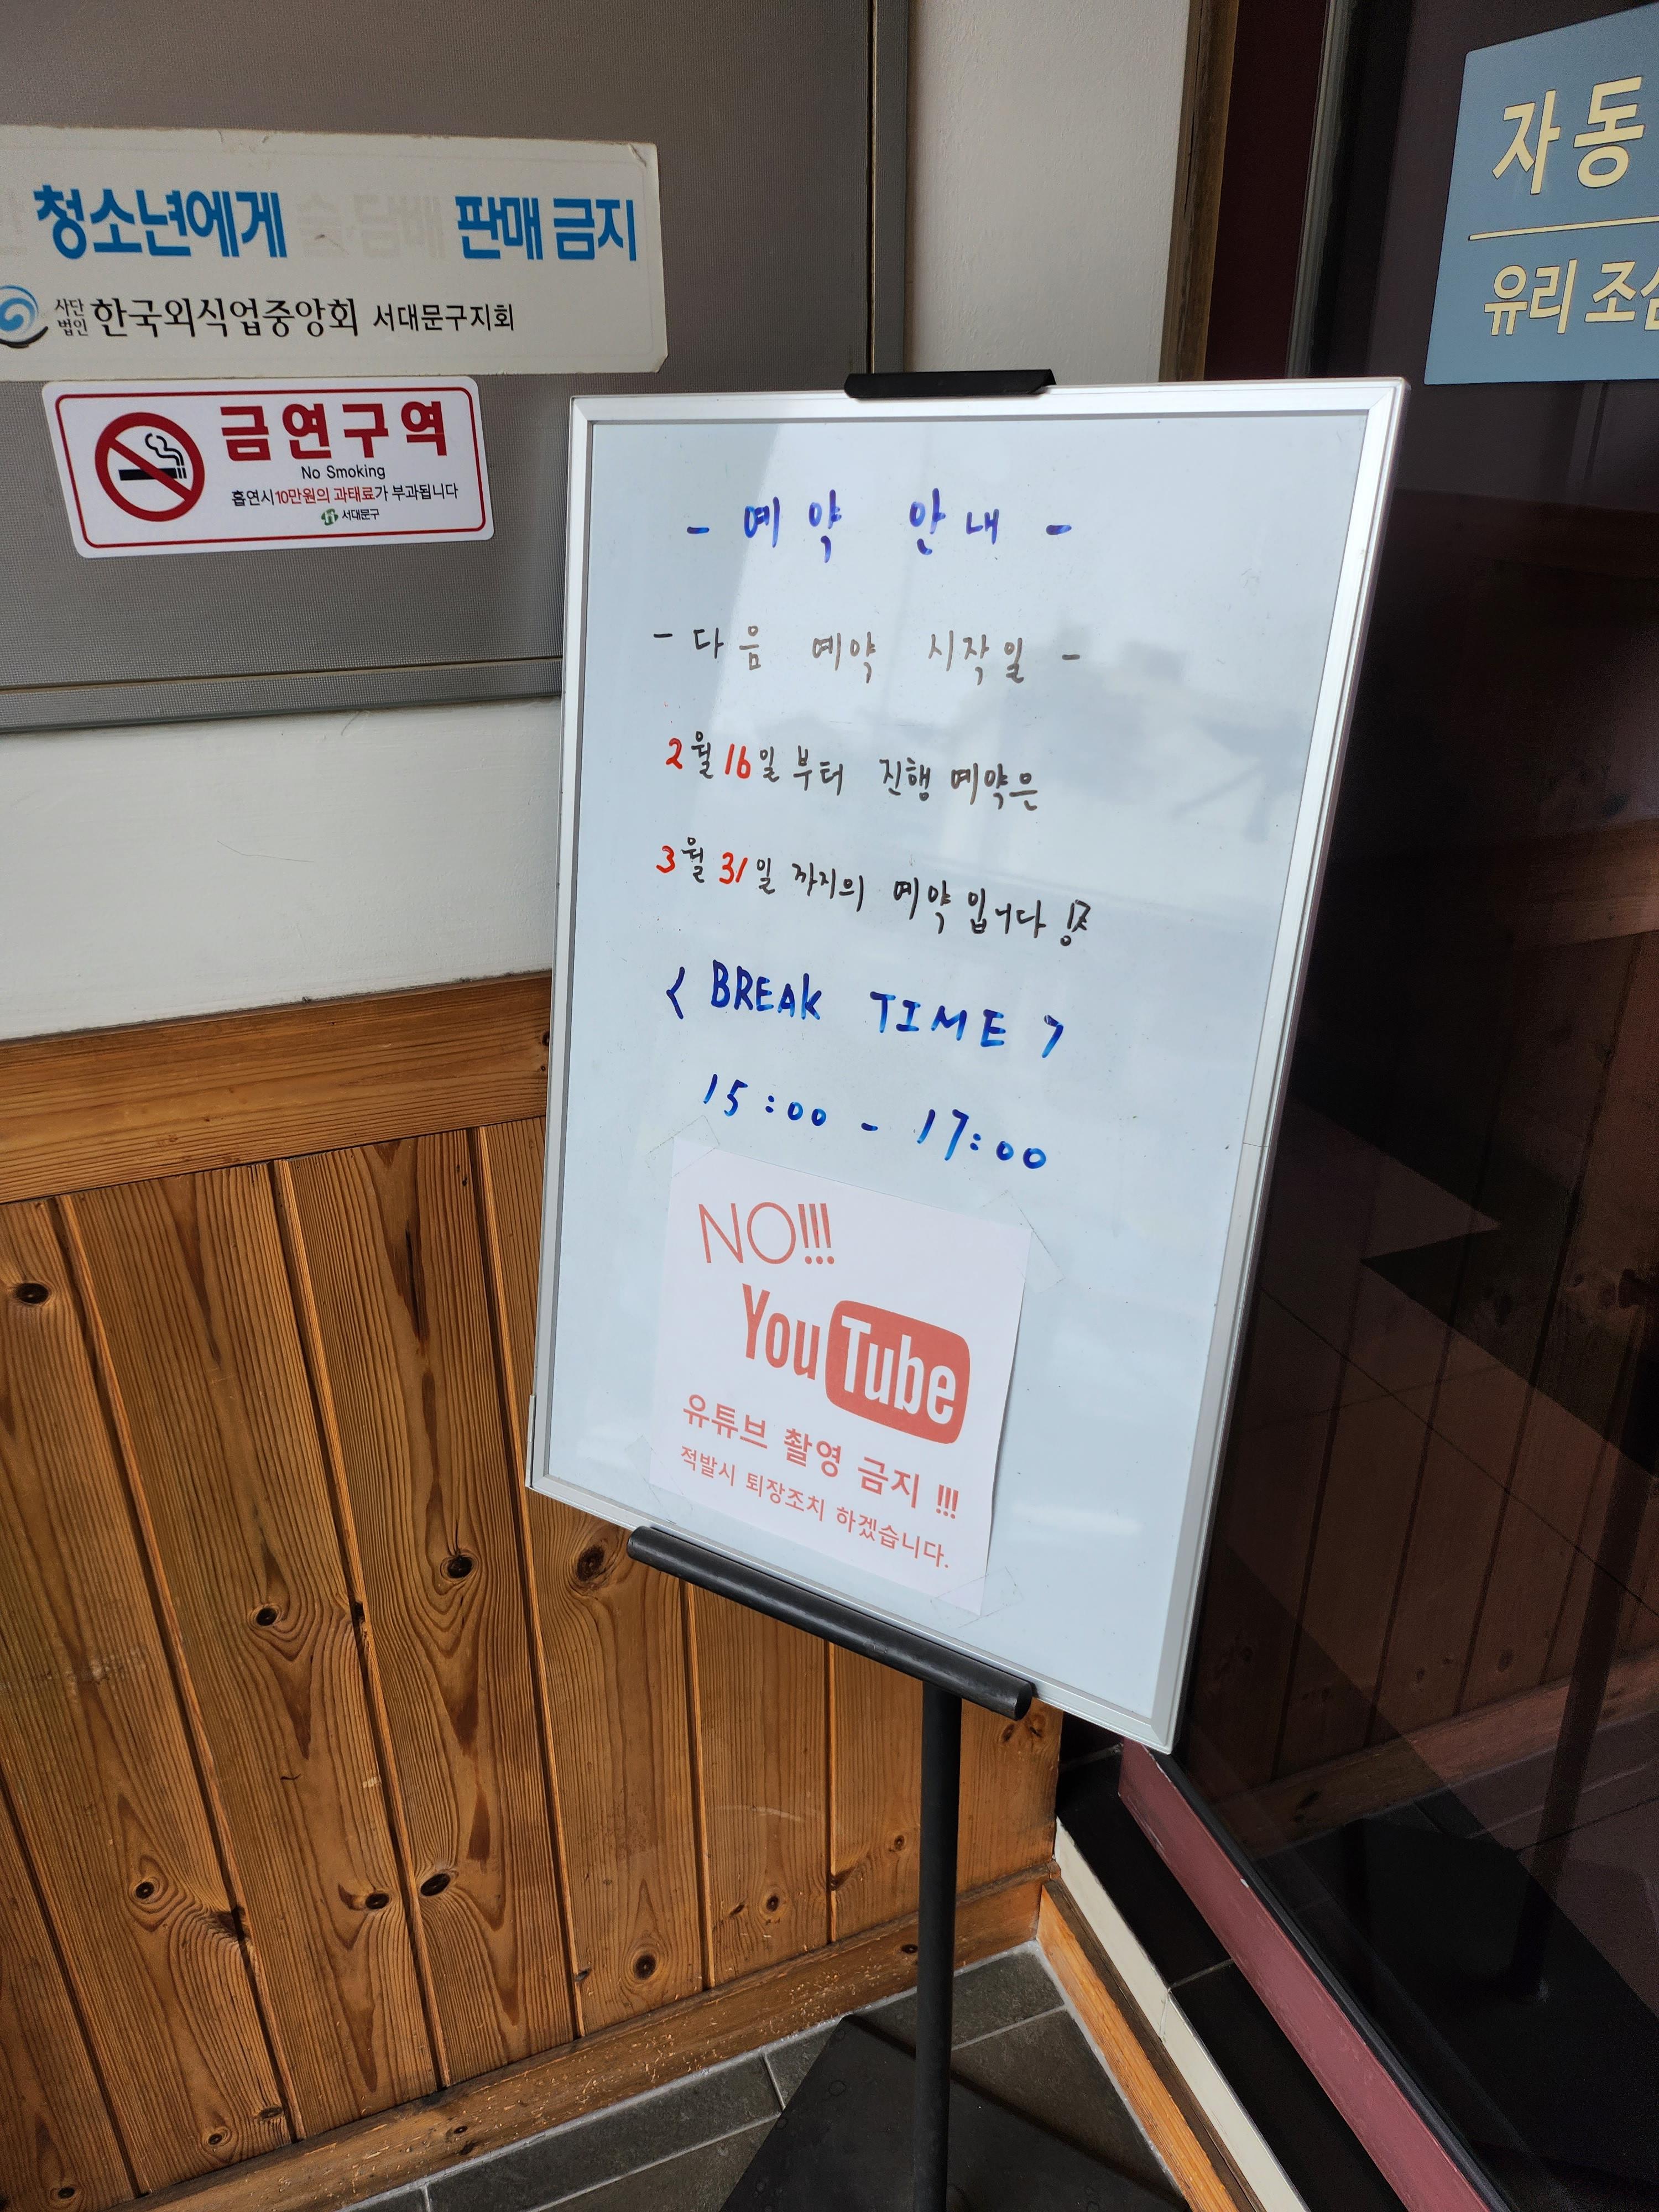 청소년에게 술·담배 판매 금지
사단법인 한국외식업중앙회 서대문구지회
금연구역
No Smoking
흡연시 10만원의 과태료가 부과됩니다
서대문구
자동
유리 조심
- 예약 안내 -
- 다음 예약 시작일 -
2월 16일 부터 진행 예약은
3월 31일 까지의 예약 입니다!
< BREAK TIME >
15:00 - 17:00
NO!!!
YouTube
유튜브 촬영 금지 !!!
적발시 퇴장조치 하겠습니다.